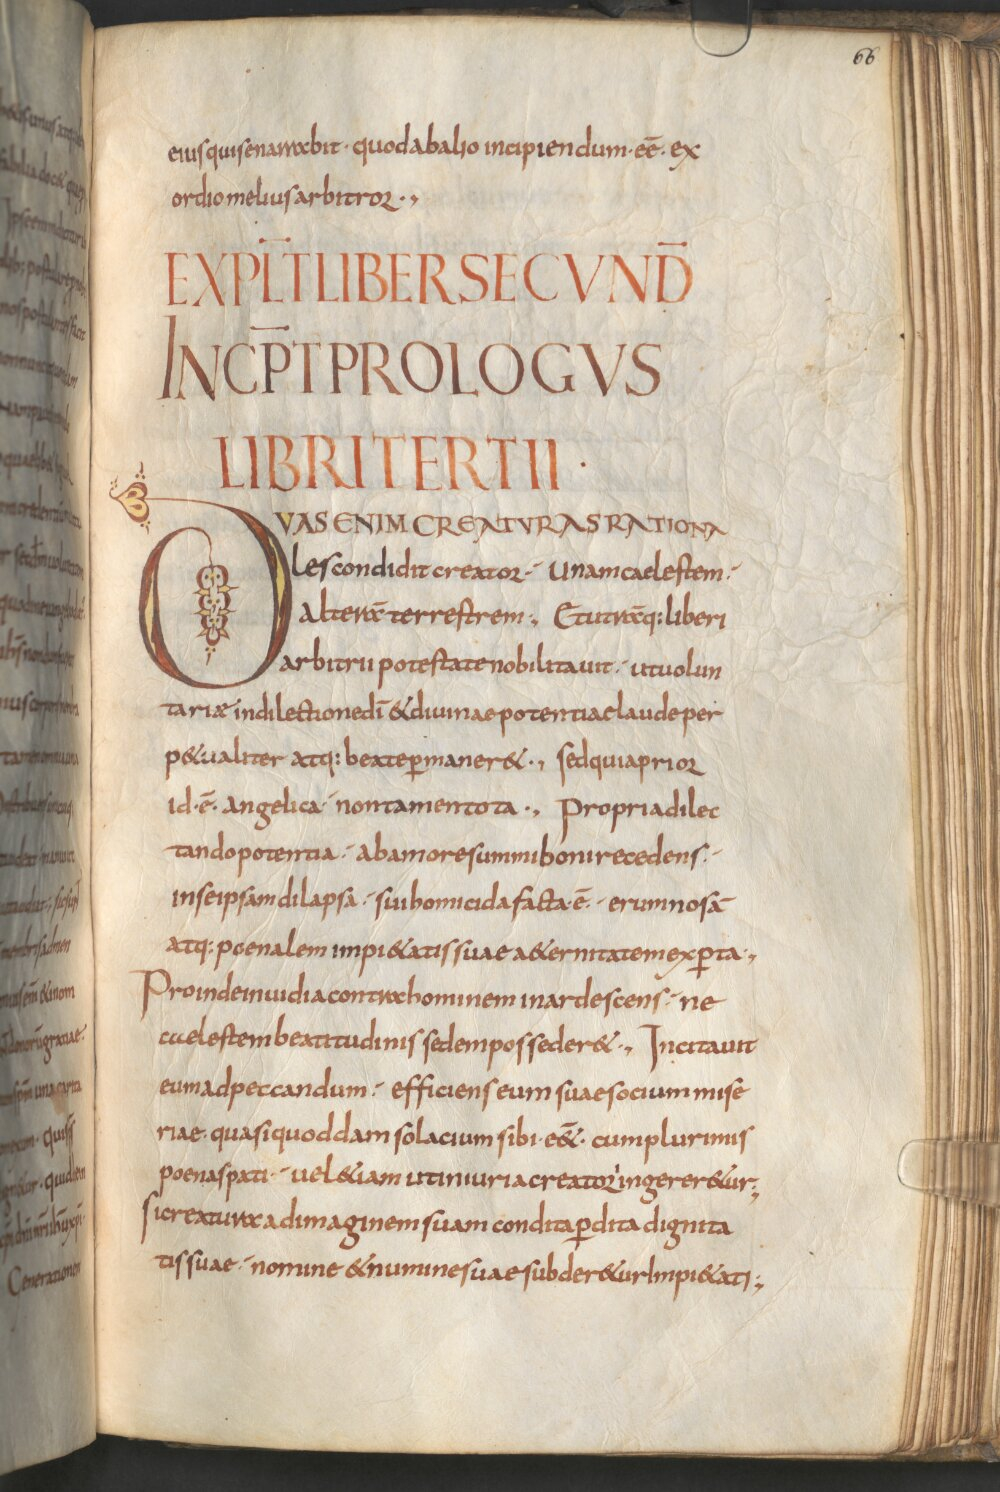 66
eius quis enarrabit · quod ab alio incipiendum · eē · ex
ordio melius arbitror · ,
EXPLT̄ LIBER SECVND̄
INCP̄T PROLOGVS
LIBRI TERTII ·
DVAS ENIM CREATVRAS RATIONA
les condidit creator · Unam caelestem ·
alterā terrestrem ·, Et utrāq: liberi
arbitrii potestate nobilitauit · ut uolun
tariæ in dilectione dī & diuinae potentiae laude per
p&ualiter atq: beate p̄maner& ·, sed quia prior
id · ē · angelica · non tamen tota ·, Propria dilec
tando potentia · ab amore summi boni recedens ·
in se ipsam dilapsa · sui homicida facta · ē · erumnosā
atq: poenalem impi&atis suae a&ernitatem exp̄ta ·,
Proinde inuidia contra hominem inardescens · ne
caelestem beatitudinis sedem posseder& ·, Incitauit
eum ad peccandum · efficiens eum suae socium mise
riae · quasi quoddam solacium sibi · e&̄ · cum plurimis
poenas pati · uel &iam ut iniuria creatori ingerer&ur ;,
si creatura ad imaginem suam condita p̄dita dignita
tis suae · nomine & numine suae subder&ur impi&ati ;,